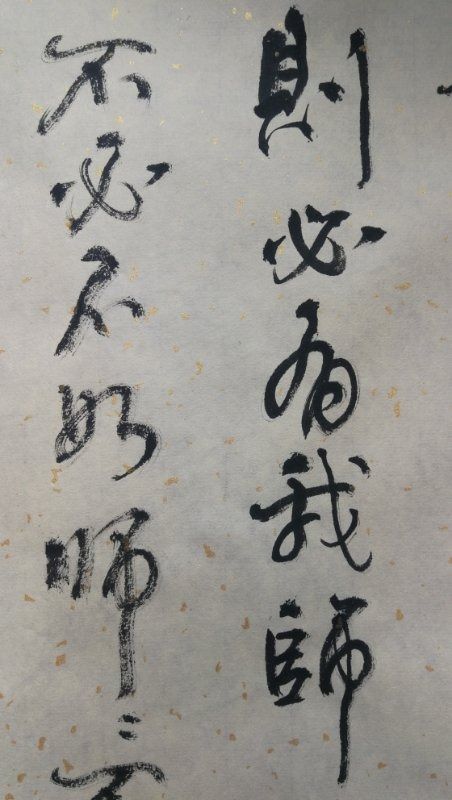 則必有我師
不必不如師〻不